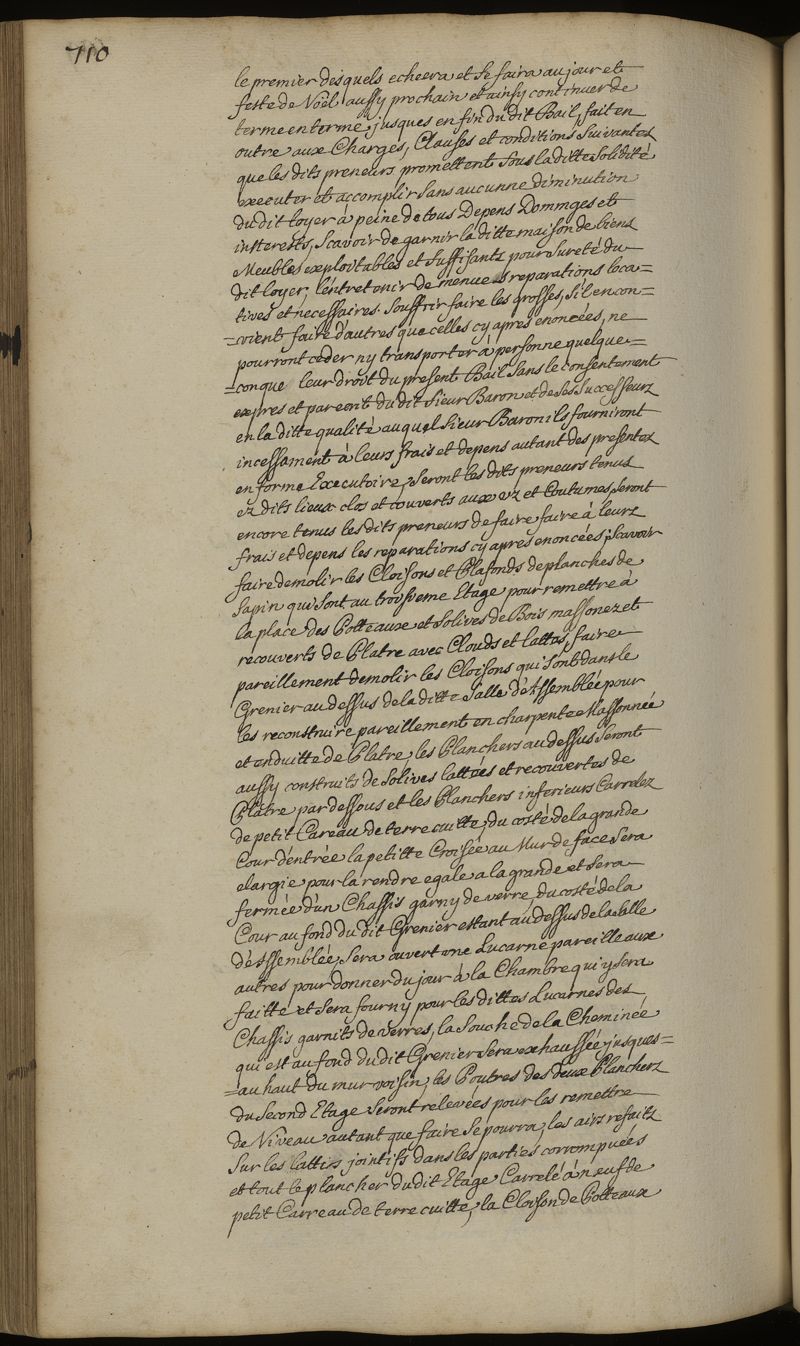 710
le premier desquels echeera et se faira au jour et
feste de Noël aussy prochain et ainsy continuer de
terme en terme jusques en fin du dit Bail, fait en
outre aux Charges, Clauses et conditions suivantes
que les dits preneurs promettent sous la ditte solidité
executer et accomplir sans aucunne diminution
du dit loyer à peine de tous Depens Dommges et
intterests, Scavoir de garnir la ditte maison de biens
Meubles exploitables et suffisants pour sureté du
dit loyer, l'entretenir de menues reparations loca=
tives et necessaires. Souffrir faire les grosses, s'il en con=
=vient faire d'autres que celles cy apres enoncées, ne
pourront ceder ny transporter à personne quelque=
=conque leur droit du present Bail sans le consentement
expres et par ecrit du dit Sieur Baron et de ses Successeurs
en la ditte qualité auquel Sieur Baron ils fourniront
incessament à leurs frais et depens autant des presentes
en forme Executoire, Seront les dits preneurs tenus
ez dits lieux clos et couverts aux uz et Coutumes, Seront
encore tenus les dits preneurs de faire faire à leurs
frais et depens les reparations cy apres enoncées; Scavoir
faire demolir les Cloisons et Plafonds de planches de
sapin qui sont au troisieme Etage pour remettre à
la place des Potteaux et solives de Bois massonez et
recouverts de Platre avec Clouds et lattes, faire
pareillement demolir les Cloisons qui sont dans le
Grenier au dessus de la ditte Salle d'Assemblée pour
les reconstruire pareillement en charpente Massonnée
et enduitte de Platre, les Planchers au dessus seront
aussy construits de solives lattées et recouvertes de
Plâtre par dessous et les Planchers inferieurs Carrelez
de petit Careau de terre cuitte, du costé de la grande
Cour d'entrée la petitte Croisée au Mur de face sera
elargie pour la rendre egale a la grande et sera
fermée d'un Chassis garny de verre, du costé de la
Cour au fond du dit Grenier estant au dessus de la salle
d'Assemblée, sera ouvert une Lucarne pareille aux
autres pour donner du jour à la Chambre qui y sera
faitte et sera fourny pour les dittes Lucarnes des
Chassis garnits de verres, la Souche de la Cheminée
qui est au fond du dit Grenier sera exhaussée jusques=
=au haut du mur voisin, les Poutres des deux Planchers
du Second Etage seront relevées pour les remettre
de Niveau autant que faire se pourra, les airs refaits
sur les lattis jointifs dans les parties corrompuées
et tout le plancher du dit Etage Carrelé à neuf de
petit Carreau de terre cuitte, la Cloison de Potteaux